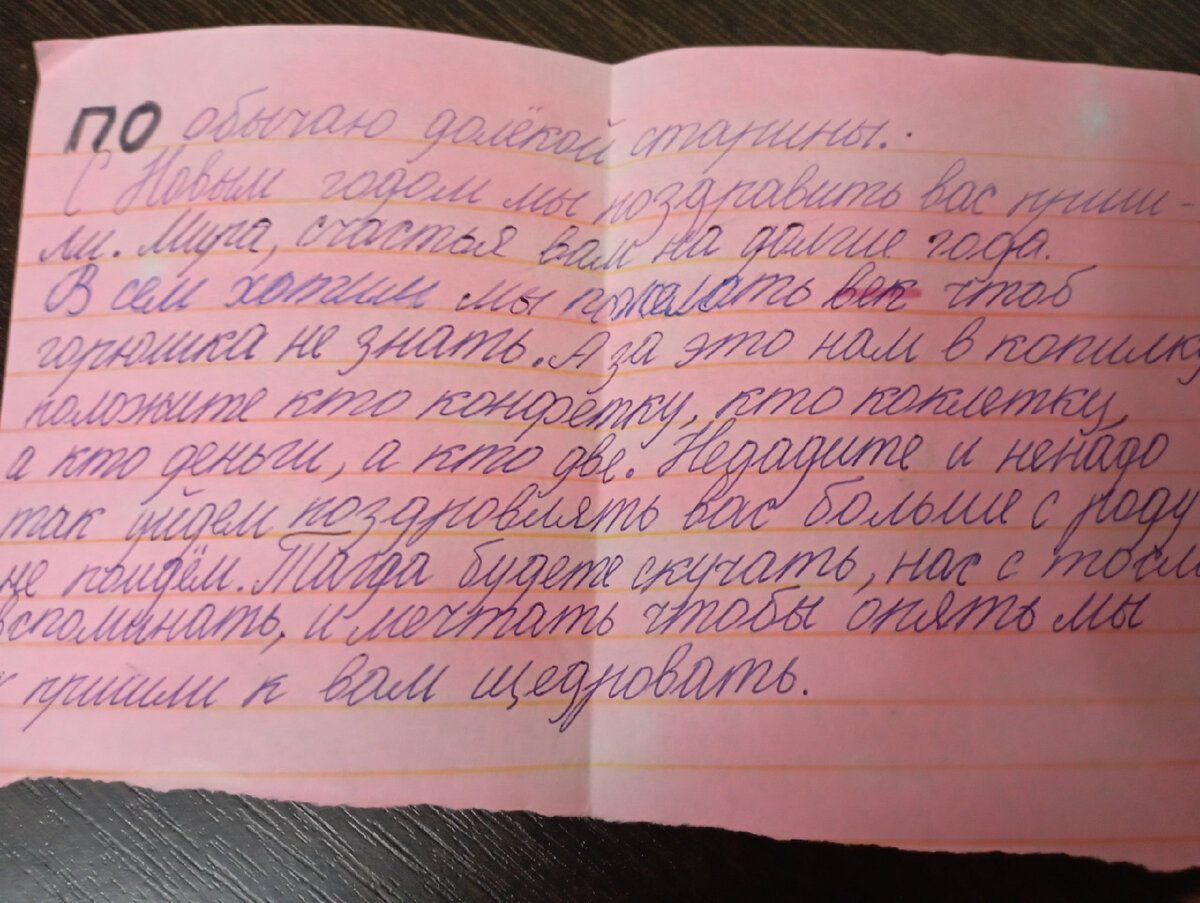 ПО обычаю далёкой старины.
С Новым годом мы поздравить вас приш-
ли. Мира, счастья вам на долгие года.
Всем хотим мы пожелать век чтоб
горюшка не знать. А за это нам в копилку
положите кто конфетку, кто коклетку,
а кто деньги, а кто две. Недадите и ненадо
так уйдем поздровлять вас больше с роду
не поидём. Тагда будете скучать, нас с тосле
вспоминать, и мечтать чтобы опять мы
пришли к вам щедровать.